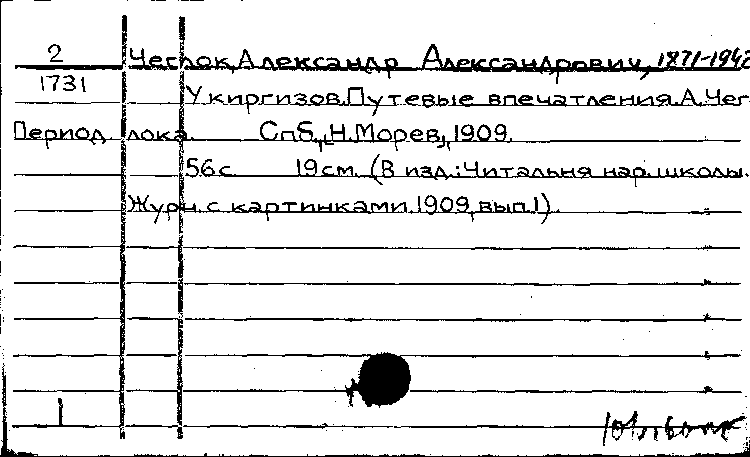 2 Чеглок, Александр Александрович, 1871-1942
1731 У киргизов. Путевые впечатления. А. Чег-
Период. лока. Спб., "Н. Морев", 1909.
56 с. 19 см. (В изд.: Читальня нар. школы.
Журн. с картинками. 1909, вып. 1).
1